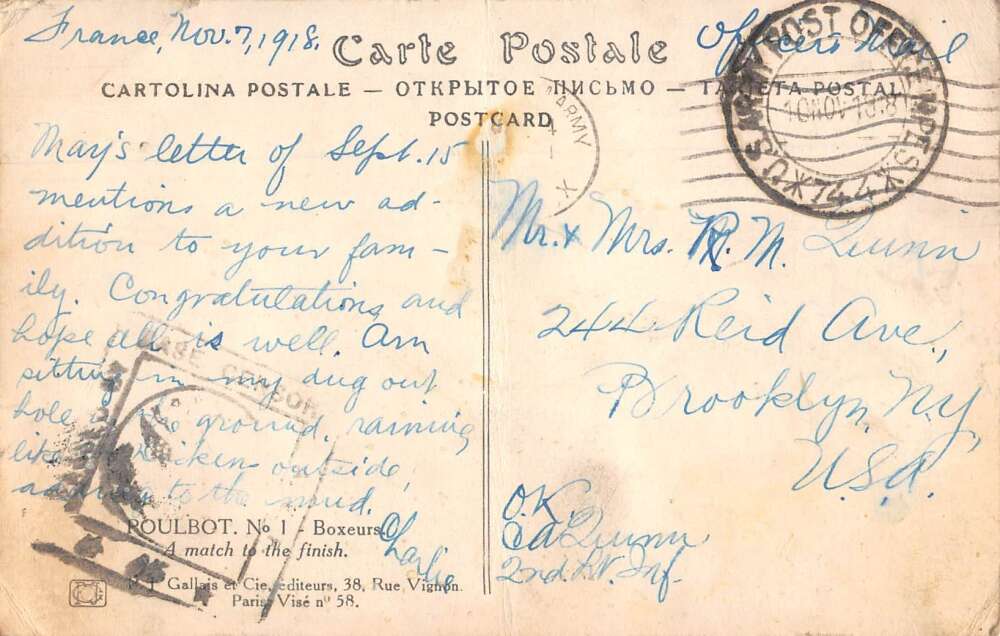 France, Nov. 7, 1918.
Officer's Mail
Carte Postale
CARTOLINA POSTALE — ОТКРЫТОЕ ПИСЬМО — TARJETA POSTAL
POSTCARD
U.S. ARMY POST OFFICE M.P.E.S.
10 NOV 1918
★ 744 ★
ARMY
May's letter of Sept. 15
mentions a new ad-
dition to your fam-
ily. Congratulations, and
hope all is well. Am
sitting in my dug out
hole in the ground, raining
like the dickens outside,
adding to the mud.
Charlie
BASE CENSOR
Mr. & Mrs. R. M. Quinn
244 Reid Ave.,
Brooklyn, N.Y.
U.S.A.
O.K.
CA Quinn
2nd Lt. Inf.
POULBOT. No 1 - Boxeurs.
A match to the finish.
P. J. Gallais et Cie, éditeurs, 38, Rue Vignon.
Paris. Visé nº 58.